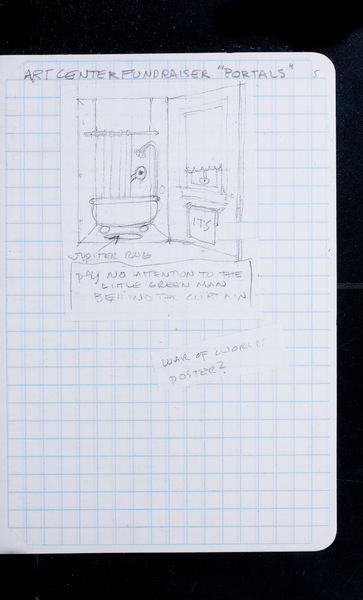 ART CENTER FUNDRAISER "PORTALS" 5
ITS
JUPITER RUG
PAY NO ATTENTION TO THE
LITTLE GREEN MAN
BEHIND THE CURTAIN
WAR OF WORLDS
POSTER?